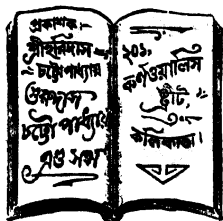 প্রকাশক :—
শ্রীহরিদাস
চট্টোপাধ্যায়
গুরুদাস
চট্টোপাধ্যায়
এণ্ড সন্স
২০১,
কর্নওয়ালিস
ষ্ট্রীট,
কলিকাতা।